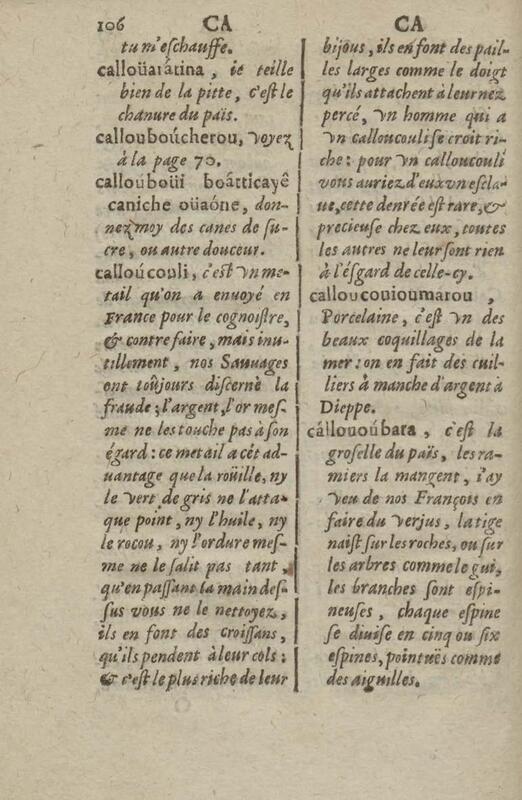 106 CA CA
tu m'eſchauffe.
calloüarátina, ie teille
bien de la pitte, c'eſt le
chanure du païs.
callouboúcherou, voyez
à la page 70.
callouboüi boátticayê
caniche oüaóne, don-
nez moy des canes de ſu-
cre, ou autre douceur.
calloúcouli, c'eſt vn me-
tail qu'on a enuoyé en
France pour le cognoiſtre,
& contrefaire, mais inu-
tillement, nos Sauuages
ont toûjours diſcerné la
fraude; l'argent, l'or meſ-
me ne les touche pas à ſon
égard: ce metail a cét ad-
uantage que la roüille, ny
le vert de gris ne l'atta-
que point, ny l'huile, ny
le rocou, ny l'ordure meſ-
me ne le ſalit pas tant,
qu'en paſſant la main deſ-
ſus vous ne le nettoyez,
ils en font des croiſſans,
qu'ils pendent à leur cols:
& c'eſt le plus riche de leur
bijous, ils en font des pail-
les larges comme le doigt
qu'ils attachent à leur nez
percé, vn homme qui a
vn calloucouli ſe croit ri-
che: pour vn calloucouli
vous auriez d'eux vn eſcla-
ue, cette denrée eſt rare, &
precieuse chez eux, toutes
les autres ne leur ſont rien
à l'éſgard de celle-cy.
calloucouioumarou,
Porcelaine, c'eſt vn des
beaux coquillages de la
mer: on en fait des cuil-
liers à manche d'argent à
Dieppe.
cállouoúbara, c'eſt la
groſelle du païs, les ra-
miers la mangent, i'ay
veu de nos François en
faire du verjus, la tige
naiſt ſur les roches, ou ſur
les arbres comme le gui,
les branches ſont eſpi-
neuſes, chaque eſpine
ſe diuiſe en cinq ou ſix
eſpines, pointuës comme
des aiguilles.